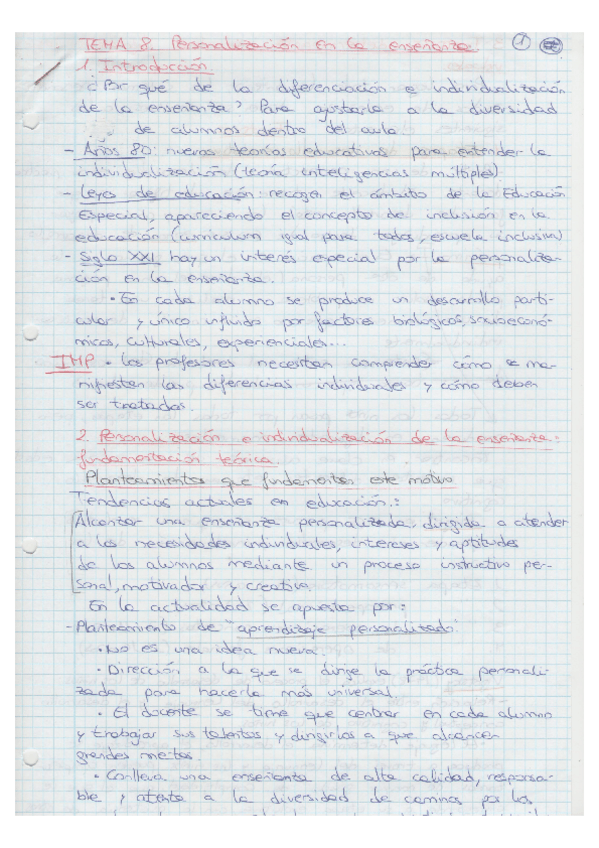 TEMA 8. Personalización en la enseñanza 1
1. Introducción.
¿Por qué de la diferenciación e individualización
de la enseñanza? Para ajustarla a la diversidad
de alumnos dentro del aula.
- Años 80: nuevas teorías educativas para entender la
individualización (teoría inteligencias múltiples)
- Leyes de educación: recogen el ámbito de la Educación
Especial, apareciendo el concepto de inclusión en la
educación (curriculum igual para todos, escuela inclusiva)
- Siglo XXI hay un interés especial por la personaliza-
ción en la enseñanza.
• En cada alumno se produce un desarrollo parti-
cular y único influido por factores biológicos, socioeconó-
micos, culturales, experienciales...
IMP • Los profesores necesitan comprender cómo se ma-
nifiestan las diferencias individuales y cómo deben
ser tratados.
2. Personalización e individualización de la enseñanza:
fundamentación teórica.
Planteamientos que fundamentan este motivo
Tendencias actuales en educación.:
Alcanzar una enseñanza personalizada, dirigida a atender
a las necesidades individuales, intereses y aptitudes
de los alumnos mediante un proceso instructivo per-
sonal, motivador y creativo.
En la actualidad se apuesta por:
- Planteamiento de "aprendizaje personalizado"
• No es una idea nueva.
• Dirección a la que se dirige la práctica personali-
zada para hacerla más universal
• El docente se tiene que centrar en cada alumno
y trabajar sus talentos y dirigirlos a que alcancen
grandes metas.
• Conlleva una enseñanza de alta calidad, responsa-
ble y atenta a la diversidad de caminos por los